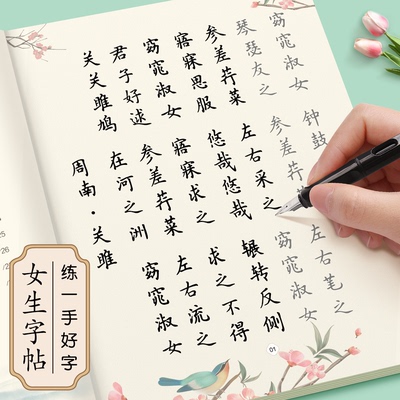 周南·关雎
关关雎鸠 在河之洲 窈窕淑女
君子好逑 参差荇菜 左右流之
窈窕淑女 寤寐求之 求之不得
寤寐思服 悠哉悠哉 辗转反侧
参差荇菜 左右采之 窈窕淑女
琴瑟友之 参差荇菜 左右笔之
窈窕淑女 钟鼓
01
练一手好字
女生字帖